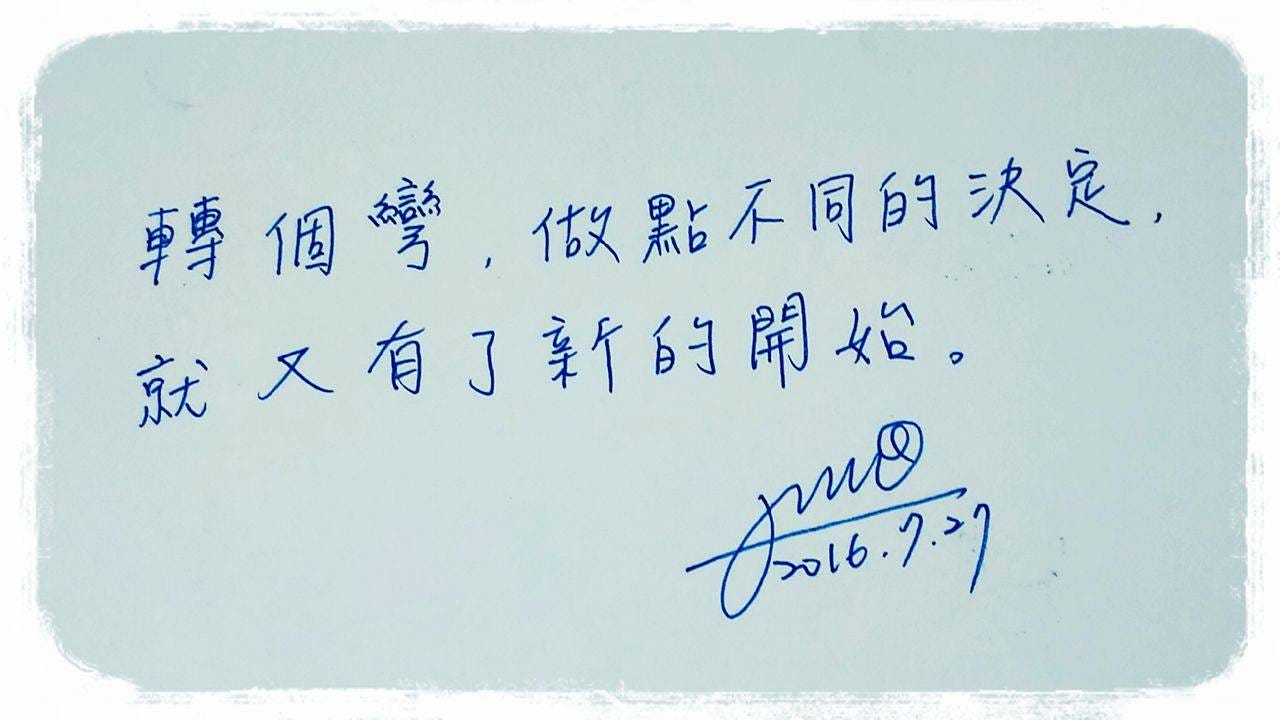 轉個彎，做點不同的決定，
就又有了新的開始。
2016.7.27